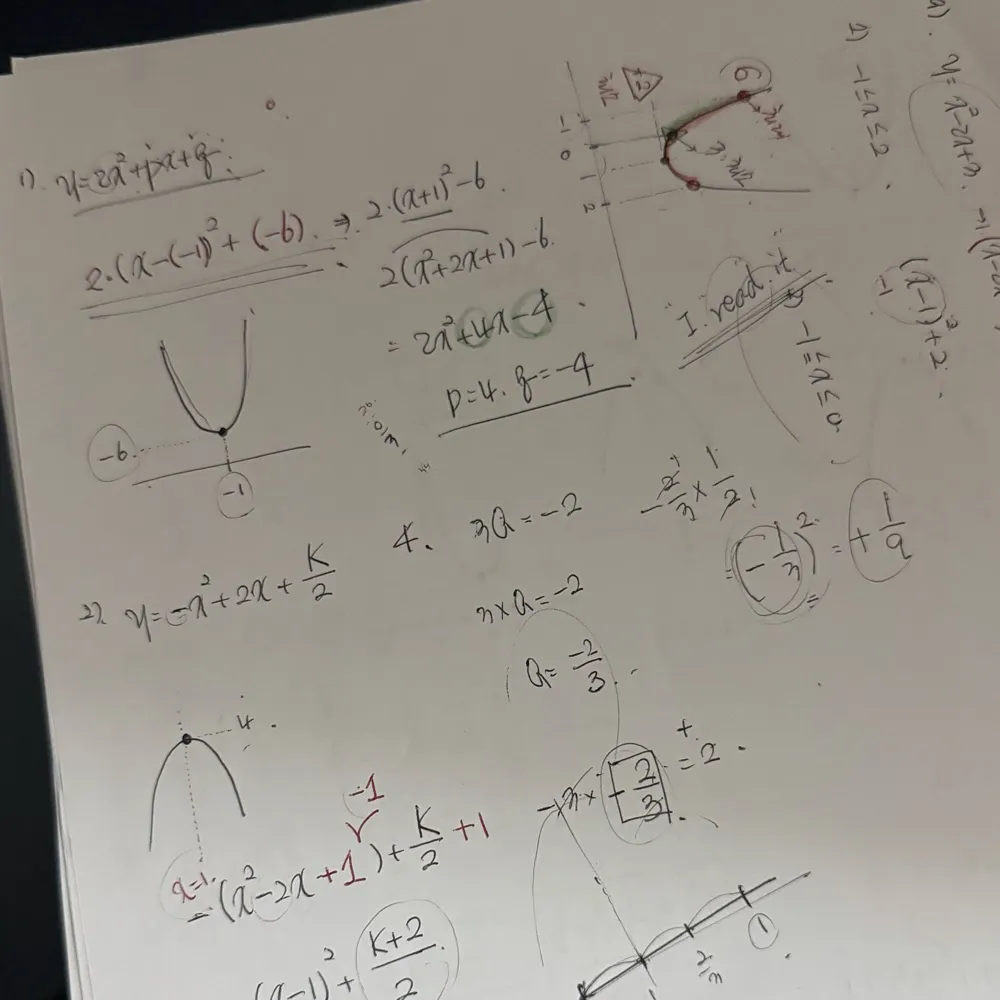 1). y=2x²+px+q.
2·(x-(-1)²+(-6). ⇒ 2·(x+1)²-6.
2(x²+2x+1)-6
= 2x²+4x-4.
p=4. q=-4
-6
-1
2). y=-x²+2x+K/2
4
x=1.
-1
=(x²-2x+1)+K/2+1
(x-1)²+(K+2)/2
4. 3a=-2
3×a=-2
a=-2/3
-3×-2/3=+2.
-2/3×1/2!
=(-1/3)²=+1/9
2/3
1
6
+2
1
0
-1
2
I. read. it
-1≤x≤0.
y=x²-2x+3.
1) -1≤x≤2
(x-1)²+2.
-1